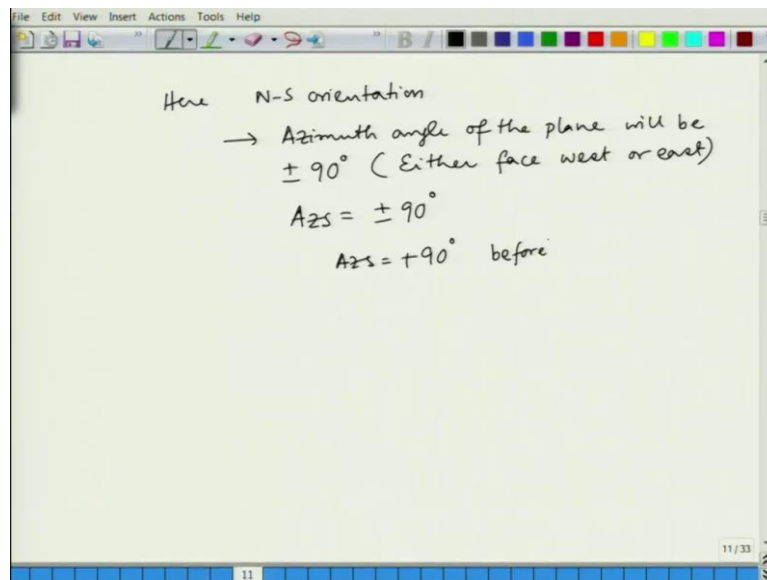 File Edit View Insert Actions Tools Help
B I
Here N-S orientation
→ Azimuth angle of the plane will be
± 90° (Either face west or east)
Azs = ± 90°
Azs = +90° before
11 / 33
11